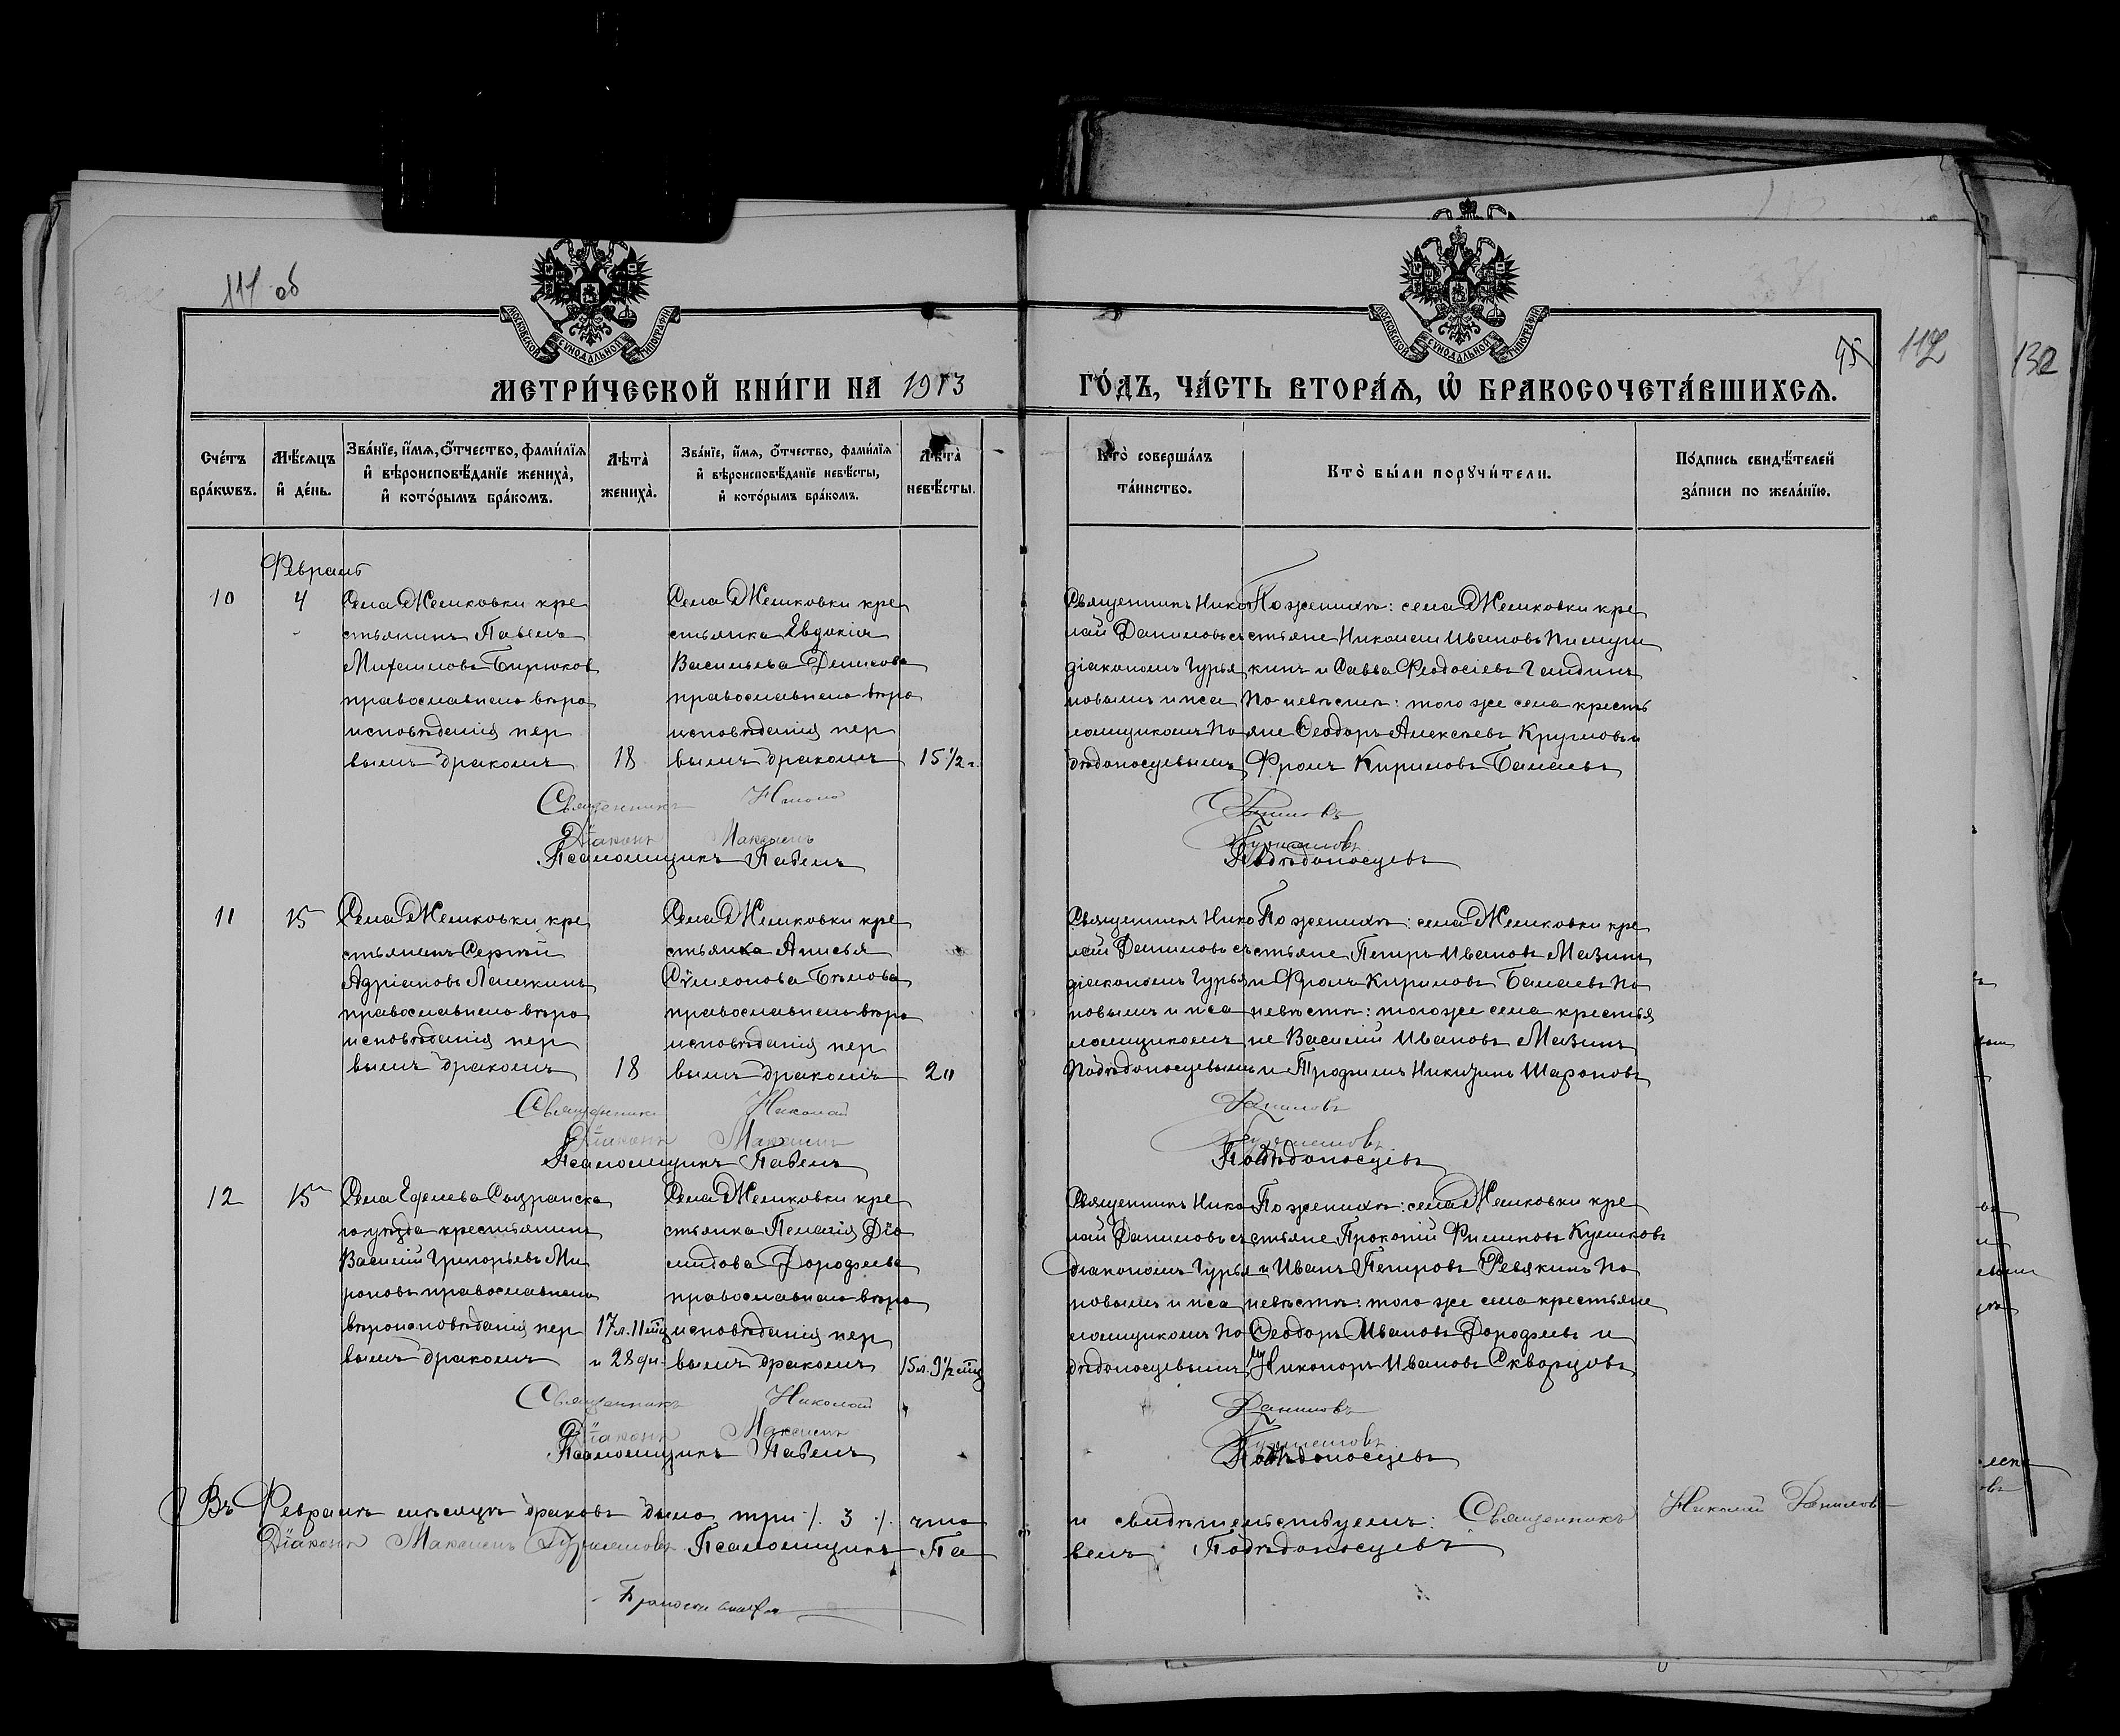 117 об
МОСКОВСКОЙ СУНОДАЛЬНОЙ ТИПОГРАФІИ
МОСКОВСКОЙ СУНОДАЛЬНОЙ ТИПОГРАФІИ
45
112
132
МЕТРИ́ЧЕСКОЙ КНИ́ГИ НА 1913 ГО́ДЪ, ЧА́СТЬ ВТОРА́Ѧ, Ѽ БРАКОСОЧЕТА́ВШИХСѦ.
Сче́тъ бра́кѡвъ.
Мѣ́сѧцъ и҆ де́нь.
Зва́нїе, и҆́мѧ, ѻ҆́тчество, фами́лїѧ и҆ вѣроисповѣ́данїе жениха̀, и҆ кото́рымъ бра́комъ.
Лѣта̀ жениха̀.
Зва́нїе, и҆́мѧ, ѻ҆́тчество, фами́лїѧ и҆ вѣроисповѣ́данїе невѣ́сты, и҆ кото́рымъ бра́комъ.
Лѣта̀ невѣ́сты.
Кто̀ соверша́лъ та́инство.
Кто̀ бы́ли порꙋчи́тели.
По́дпись свидѣ́телей за́писи по жела́нїю.
Февраль
10
4
Села Жемковки кре
стьянинъ Павелъ
Михаиловъ Бирюков
православнаго вѣро
исповѣданія пер
вымъ бракомъ
18
Села Жемковки кре
стьянка Евдокія
Васильева Денисова
православнаго вѣро
исповѣданія пер
вымъ бракомъ
15 1/2 г.
Священникъ Нико
лай Даниловъ съ
діакономъ Гурья
новымъ и пса
ломщикомъ По
бѣдоносцевымъ
По женихѣ: села Жемковки кре
стьяне Николай Ивановъ
кинъ и Савва Феодосіевъ
По невѣстѣ: того же села кресть
яне Ѳеодоръ Алексѣевъ Кругловъ и
Фролъ Кириловъ Балаевъ
Священникъ Николай Даниловъ
Діаконъ Максимъ
Псаломщикъ Павелъ Побѣдоносцевъ
11
15
Села Жемковки кре
стьянинъ Сергѣй
Адріановъ
православнаго вѣро
исповѣданія пер
вымъ бракомъ
18
Села Жемковки кре
стьянка Анисья
Сѵмеонова Бѣлова
православнаго вѣро
исповѣданія пер
вымъ бракомъ
20
Священникъ Нико
лай Даниловъ съ
діакономъ Гурья
новымъ и пса
ломщикомъ
Побѣдоносцевымъ
По женихѣ: села Жемковки кре
стьяне Петръ Ивановъ Мазинъ
и Фролъ Кириловъ Балаевъ По
невѣстѣ: того же села крестья
не Василій Ивановъ Мазинъ
и Трофимъ Никитинъ Шароновъ
Священникъ Николай Даниловъ
Діаконъ Максимъ
Псаломщикъ Павелъ Побѣдоносцевъ
12
15
Села Еделева Сызранска
го уѣзда крестьянинъ
Василій Григорьевъ Ми
роновъ православнаго
вѣроисповѣданія пер
вымъ бракомъ
17 л. 11 мѣц
и 28 дн.
Села Жемковки кре
стьянка Пелагія Діо
мидова Дорофеева
православнаго вѣро
исповѣданія пер
вымъ бракомъ
15 л. 9 1/2 мѣц
Священникъ Нико
лай Даниловъ съ
діакономъ Гурья
новымъ и пса
ломщикомъ По
бѣдоносцевымъ
По женихѣ: села Жемковки кре
стьяне Прокопій Филиповъ Куликовъ
и Иванъ Петровъ Ревякинъ По
невѣстѣ: того же села крестьяне
Ѳеодоръ Ивановъ Дорофеевъ и
Никоноръ Ивановъ Скворцовъ
Священникъ Николай Даниловъ
Діаконъ Максимъ
Псаломщикъ Павелъ Побѣдоносцевъ
Въ Февралѣ мѣсяцѣ браковъ было три /. 3 /. что и свидѣтельствуемъ: Священникъ Николай Даниловъ
Діаконъ Максимъ Псаломщикъ Павелъ Побѣдоносцевъ